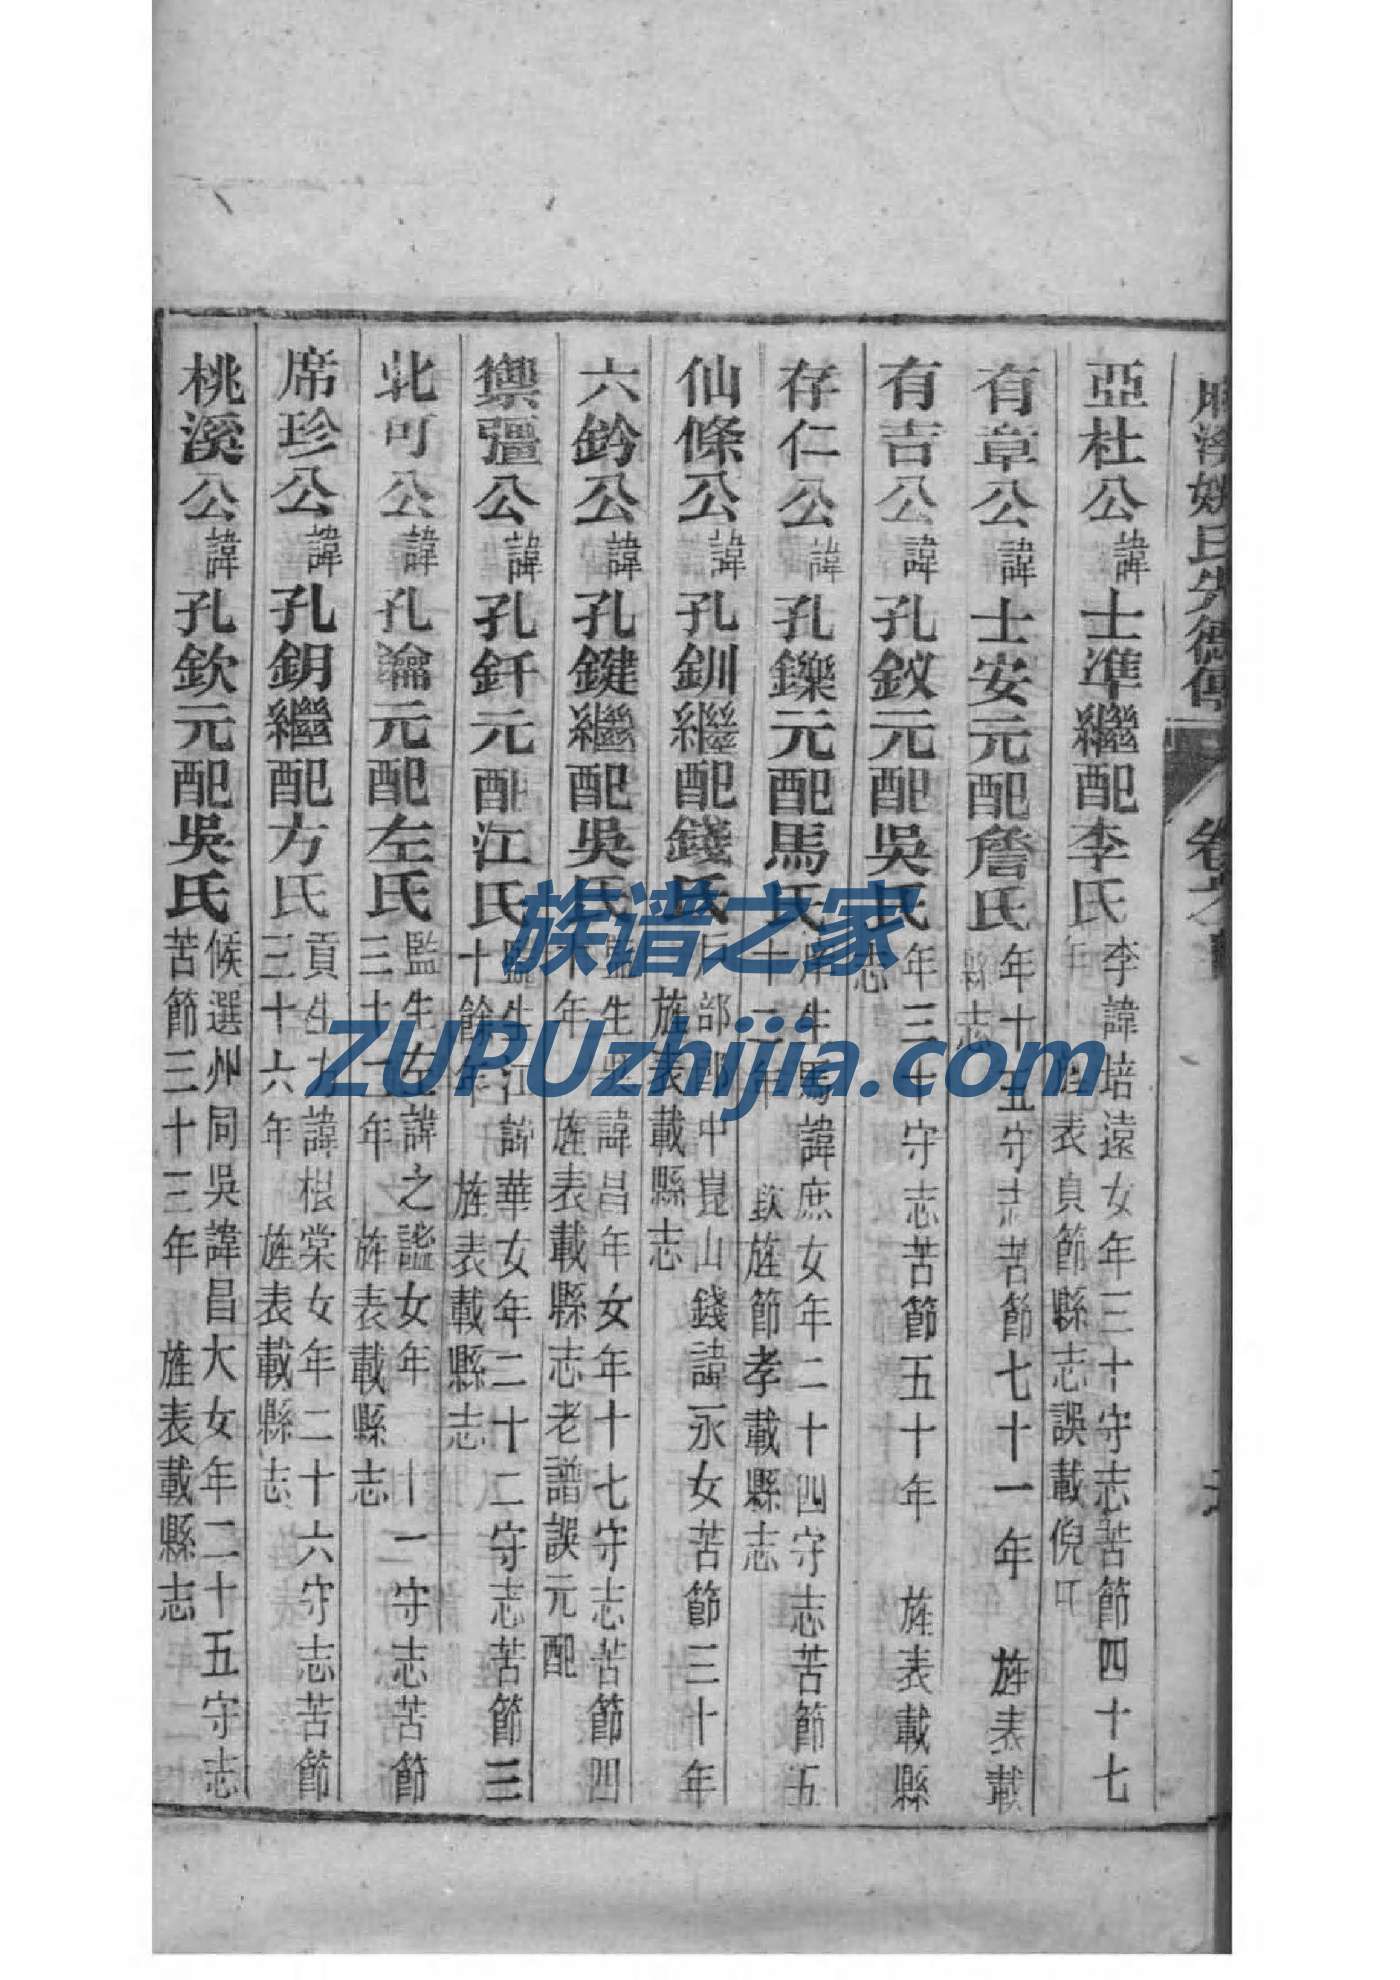 麻溪姚氏先德傳 卷六
亞杜公諱士準繼配李氏 李諱培遠女年三十守志苦節四十七年 旌表貞節縣志誤載倪氏
有章公諱士安元配詹氏 年十五守志苦節七十一年 旌表載縣志
有吉公諱孔釹元配吳氏 年三十守志苦節五十年 旌表載縣志
存仁公諱孔鑠元配馬氏 庠生馬諱庶女年二十四守志苦節五十二年 欽旌節孝載縣志
仙條公諱孔釧繼配錢氏 戶部郎中崑山錢諱永女苦節三十年 旌表載縣志
六鈐公諱孔鍵繼配吳氏 監生吳諱昌年女年十七守志苦節四十年 旌表載縣志老譜誤元配
禦彊公諱孔釬元配江氏 監生江諱華女年二十二守志苦節三十餘年 旌表載縣志
北可公諱孔瀹元配左氏 監生左諱之謐女年二十一守志苦節三十二年 旌表載縣志
席珍公諱孔鈅繼配方氏 貢生方諱棍棠女年二十六守志苦節三十六年 旌表載縣志
桃溪公諱孔欽元配吳氏 候選州同吳諱昌大女年二十五守志苦節三十三年 旌表載縣志
族谱之家
ZUPUzhijia.com